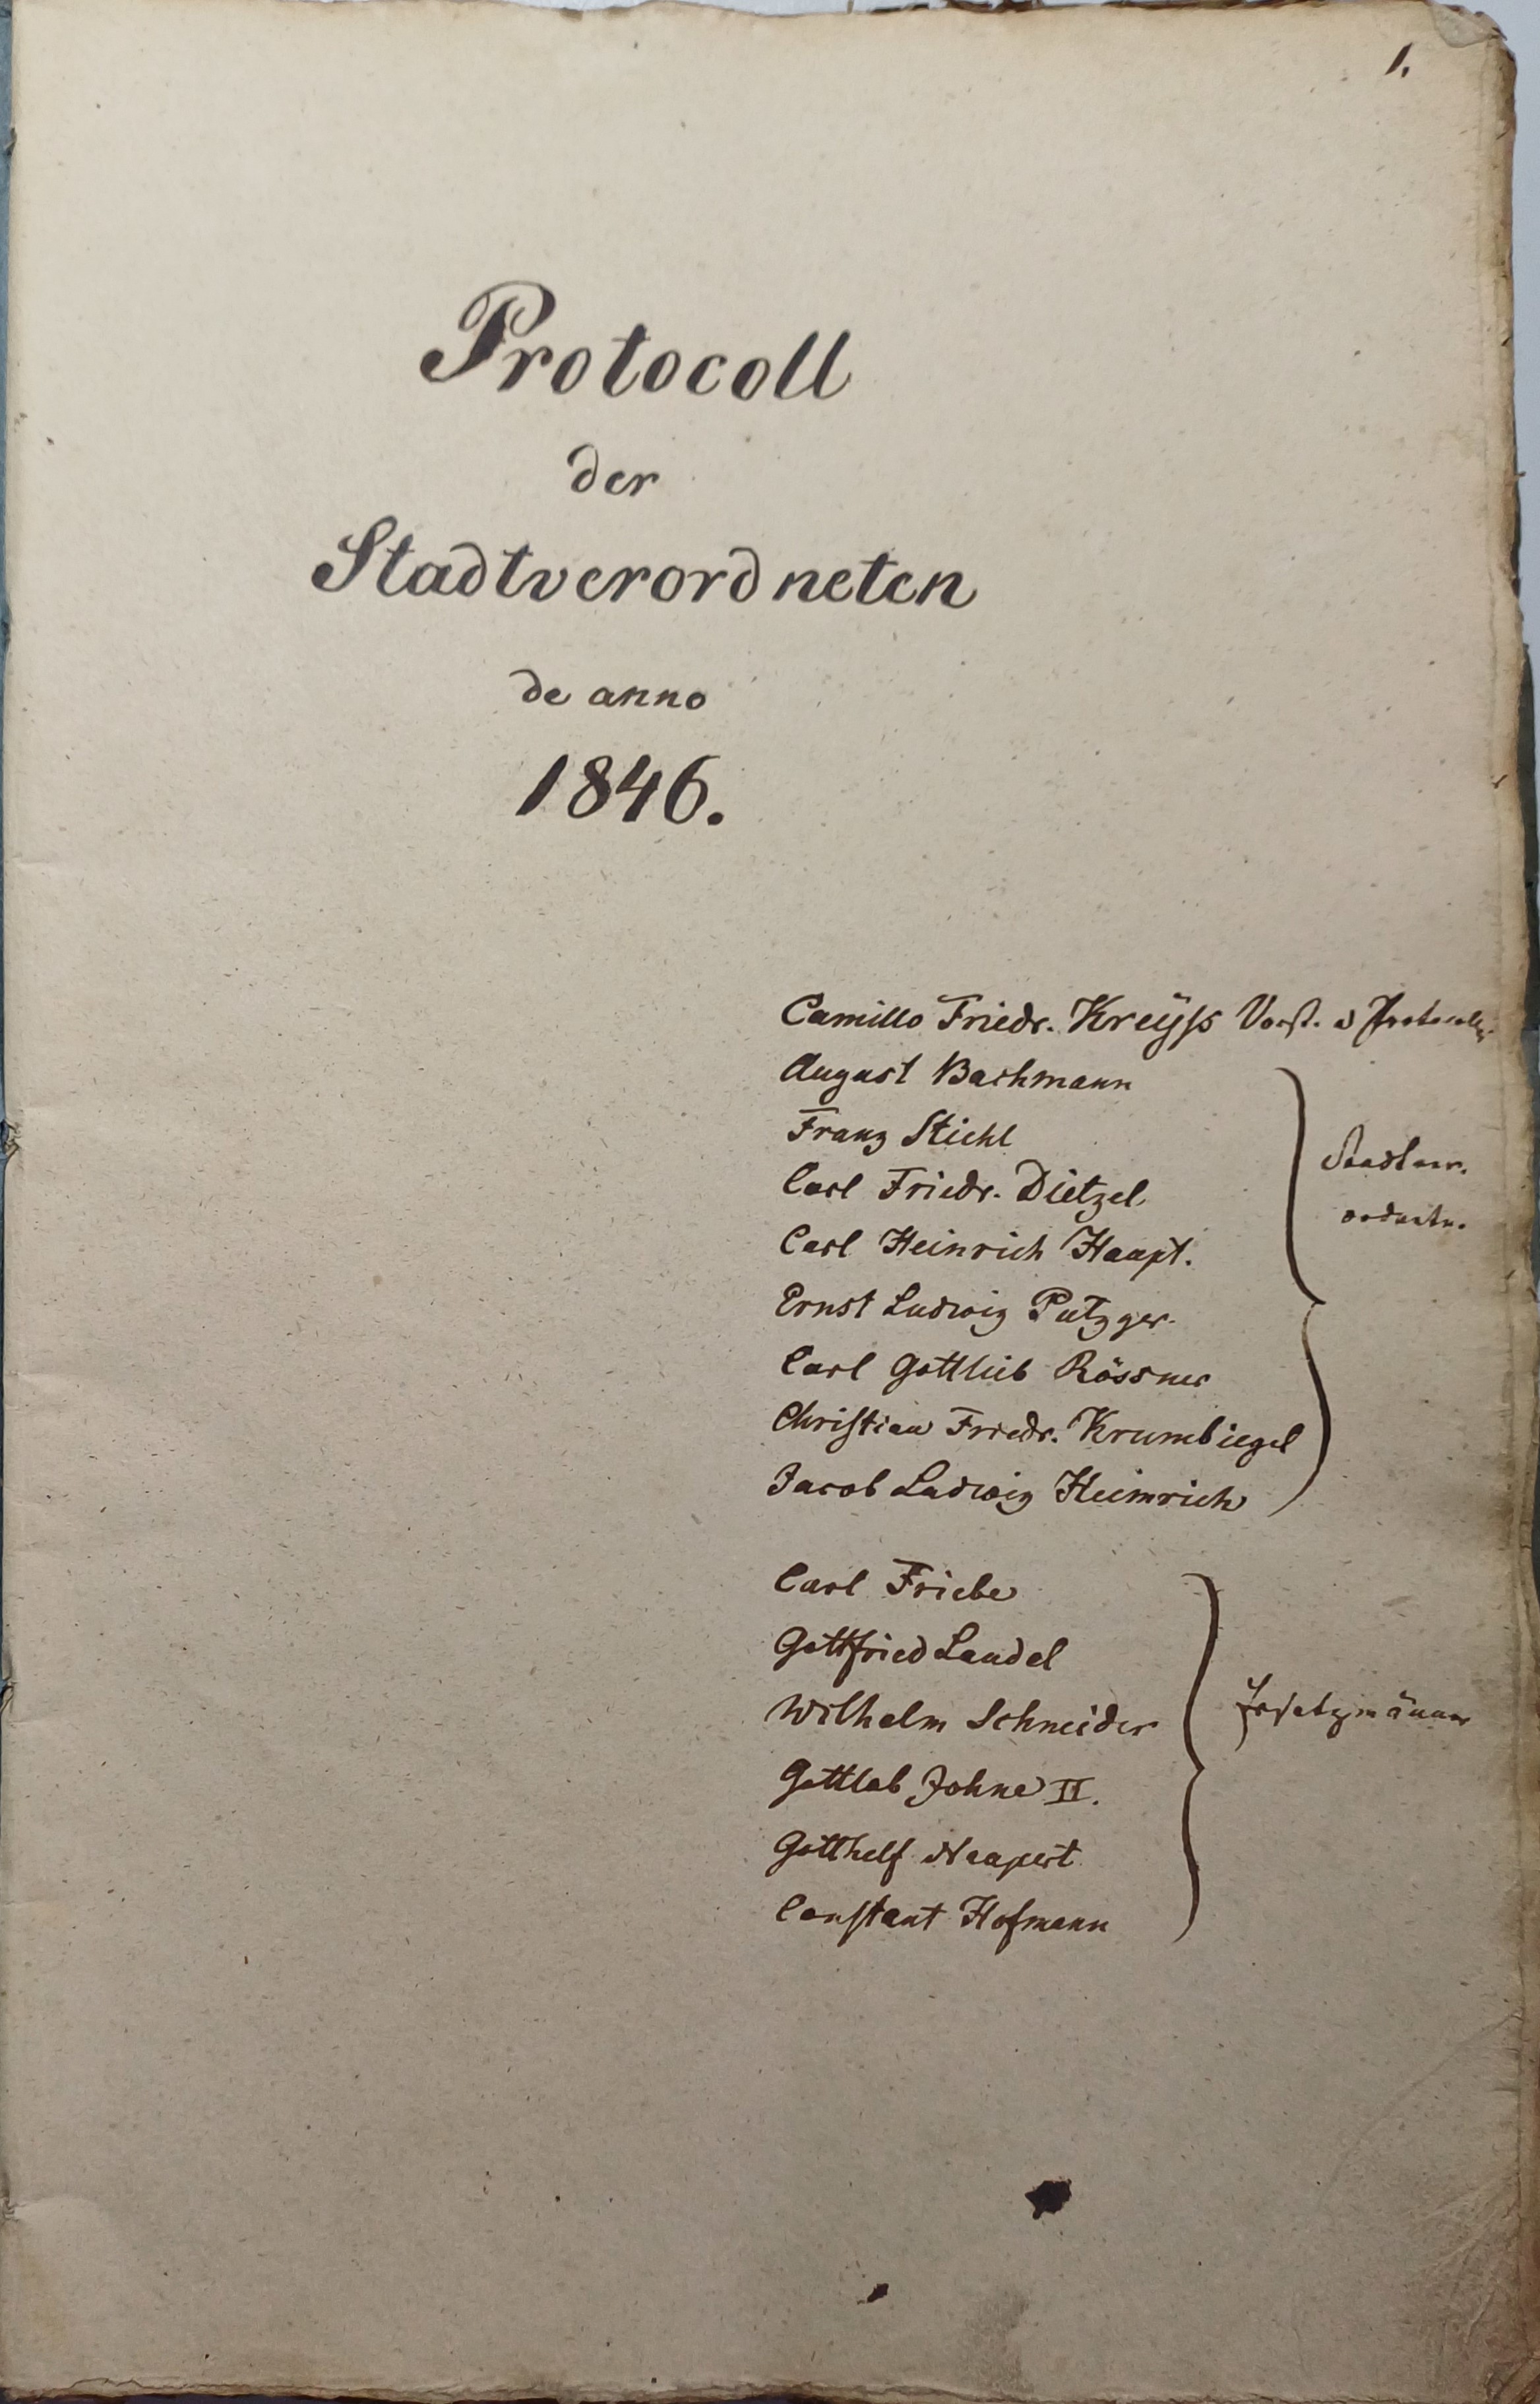 1.
Protocoll
der
Stadtverordneten
de anno
1846.
Camillo Friedr. Kreÿss Vorst. u Protocollf.
August Bachmann
Franz Stiehl
Carl Friedr. Dietzel
Carl Heinrich Haupt.
Stadtver-
ordnete.
Ernst Ludwig Putzger.
Carl Gottlieb Rössner
Christian Friedr. Krumbiegel
Jacob Ludwig Heimrich
Carl Friebe
Gottfried Landel
Wilhelm Schneider
Ersatzmänner
Gottlob Johne II.
Gotthelf Naupert
Constant Hofmann